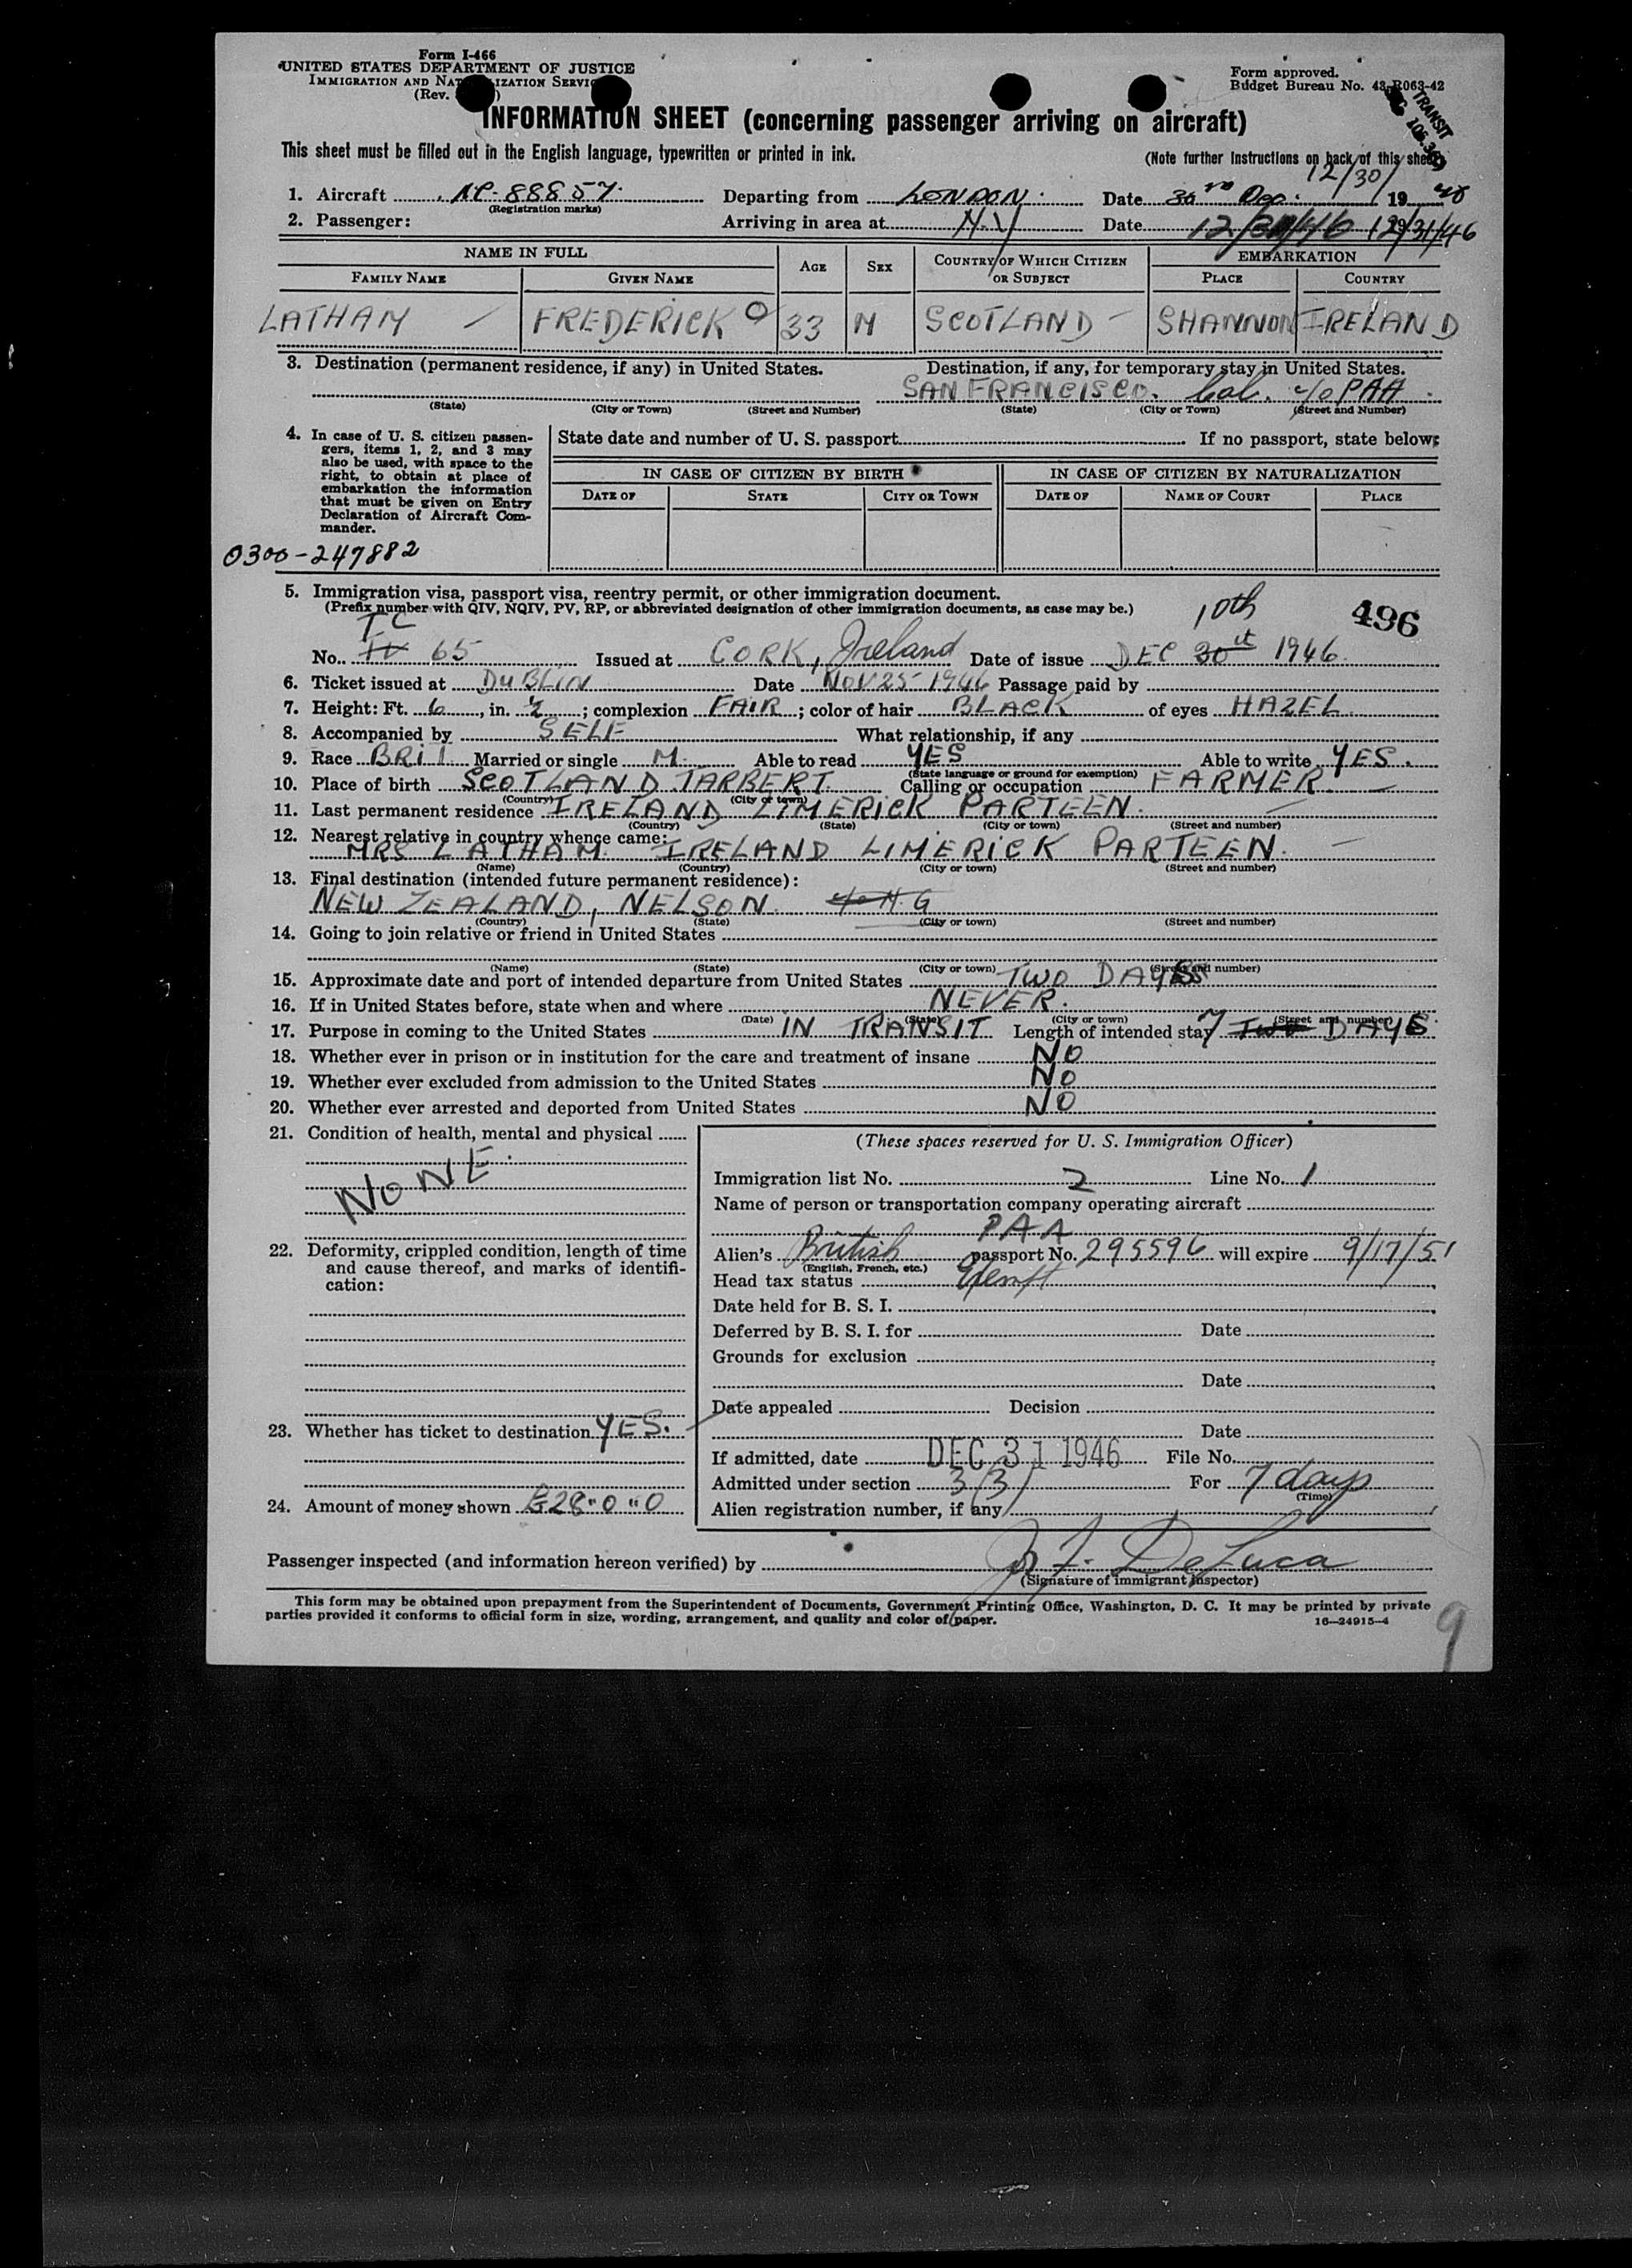 Form I-466
UNITED STATES DEPARTMENT OF JUSTICE
IMMIGRATION AND NATURALIZATION SERVICE
(Rev. )
Form approved.
Budget Bureau No. 43-R063-42
TRANSIT
INFORMATION SHEET (concerning passenger arriving on aircraft)
This sheet must be filled out in the English language, typewritten or printed in ink.
(Note further instructions on back of this sheet)
12/30/
1. Aircraft NC-88857. Departing from LONDON. Date 30 Dec. 19 46
(Registration marks)
2. Passenger: Arriving in area at N.Y Date 12/30/46 19 12/31/46
NAME IN FULL AGE SEX COUNTRY OF WHICH CITIZEN OR SUBJECT EMBARKATION
FAMILY NAME GIVEN NAME PLACE COUNTRY
LATHAM FREDERICK 33 M SCOTLAND SHANNON IRELAND
3. Destination (permanent residence, if any) in United States. Destination, if any, for temporary stay in United States.
SAN FRANCISCO. Cal. c/o PAA
(State) (City or Town) (Street and Number) (State) (City or Town) (Street and Number)
4. In case of U. S. citizen passengers, items 1, 2, and 3 may also be used, with space to the right, to obtain at place of embarkation the information that must be given on Entry Declaration of Aircraft Commander.
State date and number of U. S. passport If no passport, state below:
IN CASE OF CITIZEN BY BIRTH IN CASE OF CITIZEN BY NATURALIZATION
DATE OF STATE CITY OR TOWN DATE OF NAME OF COURT PLACE
0300-247882
5. Immigration visa, passport visa, reentry permit, or other immigration document.
(Prefix number with QIV, NQIV, PV, RP, or abbreviated designation of other immigration documents, as case may be.)
10th 496
TC
No. 65 Issued at CORK, Ireland Date of issue DEC 30 1946.
6. Ticket issued at DUBLIN Date NOV 25 1946 Passage paid by
7. Height: Ft. 6, in. 2; complexion FAIR; color of hair BLACK of eyes HAZEL
8. Accompanied by SELF What relationship, if any
9. Race BRIT Married or single M. Able to read YES Able to write YES.
(State language or ground for exemption)
10. Place of birth SCOTLAND TARBERT. Calling or occupation FARMER.
(Country) (City or town)
11. Last permanent residence IRELAND LIMERICK PARTEEN.
(Country) (State) (City or town) (Street and number)
12. Nearest relative in country whence came:
MRS LATHAM. IRELAND LIMERICK PARTEEN.
(Name) (Country) (City or town) (Street and number)
13. Final destination (intended future permanent residence):
NEW ZEALAND, NELSON.
(Country) (State) (City or town) (Street and number)
14. Going to join relative or friend in United States
(Name) (State) (City or town) (Street and number)
15. Approximate date and port of intended departure from United States TWO DAYS
16. If in United States before, state when and where NEVER.
(Date) (State) (City or town) (Street and number)
17. Purpose in coming to the United States IN TRANSIT Length of intended stay 7 Two DAYS
18. Whether ever in prison or in institution for the care and treatment of insane NO
19. Whether ever excluded from admission to the United States NO
20. Whether ever arrested and deported from United States NO
21. Condition of health, mental and physical
NONE.
22. Deformity, crippled condition, length of time and cause thereof, and marks of identification:
23. Whether has ticket to destination YES.
24. Amount of money shown £28"0"0
(These spaces reserved for U. S. Immigration Officer)
Immigration list No. 2 Line No. 1
Name of person or transportation company operating aircraft
PAA
Alien's British passport No. 295596 will expire 9/17/51
(English, French, etc.)
Head tax status Exempt
Date held for B. S. I.
Deferred by B. S. I. for Date
Grounds for exclusion
Date
Date appealed Decision
Date
If admitted, date DEC 31 1946 File No.
Admitted under section 3(3) For 7 days
(Time)
Alien registration number, if any
Passenger inspected (and information hereon verified) by J. DeLuca
(Signature of immigrant inspector)
This form may be obtained upon prepayment from the Superintendent of Documents, Government Printing Office, Washington, D. C. It may be printed by private
parties provided it conforms to official form in size, wording, arrangement, and quality and color of paper. 16—24915-4
9